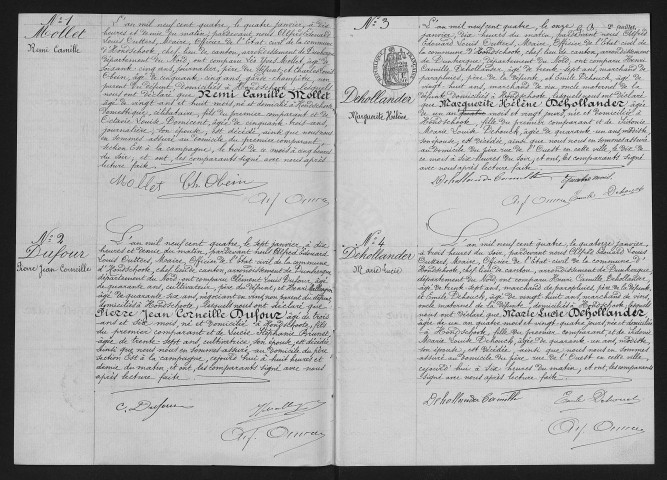 N° 1
Mollet
Remi Camille
L'an mil neuf cent quatre, le quatre janvier, à dix
heures et demie du matin, pardevant nous Alfred Edouard
Louis Outters, Maire, Officier de l'état civil de la commune
d'Hondschoote, chef lieu de canton, arrondissement de Dunkerque
département du Nord, ont comparu Mollet, âgé de
soixante cinq ans, journalier, père du défunt, et Charles Louis
Obein, âgé de cinquante cinq ans, garde champêtre, non
parent du défunt, domiciliés à Hondschoote, lesquels
nous ont déclaré que Remi Camille Mollet
âgé de vingt ans et huit mois, né et domicilié à Hondschoote,
domestique, célibataire, fils du premier comparant et de
âgé de cinquante trois ans,
journalière, son épouse, est décédé, ainsi que nous nous
en sommes assuré, au domicile du premier comparant
section Est à la campagne, le trois de ce mois à cinq heures
du soir, et ont, les comparants signé avec nous après
lecture faite
Mollet Ch. Obein
N° 2
Dufour
Pierre Jean Corneille
L'an mil neuf cent quatre, le sept janvier, à dix
heures et demie du matin, pardevant nous Alfred Edouard
Louis Outters, Maire, Officier de l'état civil de la commune
d'Hondschoote, chef lieu de canton, arrondissement de Dunkerque,
département du Nord, ont comparu Clément Louis Dufour, âgé
de quarante ans, cultivateur, père du défunt, et Henri
âgé de quarante six ans, négociant en vins, non parent du défunt
domiciliés à Hondschoote, lesquels nous ont déclaré que
Pierre Jean Corneille Dufour, âgé de trois
ans et six mois, né et domicilié à Hondschoote, fils
du premier comparant et de Lucie Stéphanie Brunet,
âgée de trente sept ans, cultivatrice, son épouse, est décédé,
ainsi que nous nous en sommes assuré, au domicile du père
section Est à la campagne, cejourd'hui à huit heures et
demie du matin, et ont, les comparants signé avec nous
après lecture faite
C. Dufour
N° 3
Dehollander
Marguerite Hélène
L'an mil neuf cent quatre, le onze
janvier, dix heures du matin, pardevant nous Alfred
Edouard Louis Outters, Maire, Officier de l'état civil de
la commune d'Hondschoote, chef lieu de canton, arrondissement
de Dunkerque, département du Nord, ont comparu Henri
Camille Dehollander, âgé de trente sept ans, marchand de
parapluies, père de la défunte, et Emile Dehouck, âgé de
vingt huit ans, marchand de vins, de la
défunte, domiciliés à Hondschoote, lesquels nous ont déclaré
que Marguerite Hélène Dehollander, âgée
de un an mois et vingt jours, née et domiciliée à
Hondschoote, fille du premier comparant et de Sidonie
Marie Louise Dehouck, âgée de quarante un ans, modiste,
son épouse, est décédée, ainsi que nous nous en sommes assuré
au domicile du père rue de l'Ouest en cette ville, le dix de
ce mois à six heures du soir, et ont, les comparants signé
avec nous après lecture faite
Dehollander Camille
Emile Dehouck
N° 4
Dehollander
Marie Lucie
L'an mil neuf cent quatre, le quatorze janvier,
à trois heures du soir, pardevant nous Alfred Edouard Louis
Outters, Maire, Officier de l'état civil de la commune d'
Hondschoote, chef lieu de canton, arrondissement de Dunkerque
département du Nord, ont comparu Henri Camille Dehollander,
âgé de trente sept ans, marchand de parapluies, père de la défunte
et Emile Dehouck, âgé de vingt huit ans, marchand de vins,
oncle maternel de la défunte, domiciliés à Hondschoote, lesquels
nous ont déclaré que Marie Lucie Dehollander,
âgée de un an quatre mois et vingt quatre jours, née et domiciliée
à Hondschoote, fille du premier comparant et de Sidonie
Marie Louise Dehouck, âgée de quarante un ans, modiste,
son épouse, est décédée, ainsi que nous nous en sommes
assuré au domicile du père, rue de l'Ouest en cette ville,
cejourd'hui à six heures du matin, et ont, les comparants
signé avec nous après lecture faite
Dehollander Camille Emile Dehouck